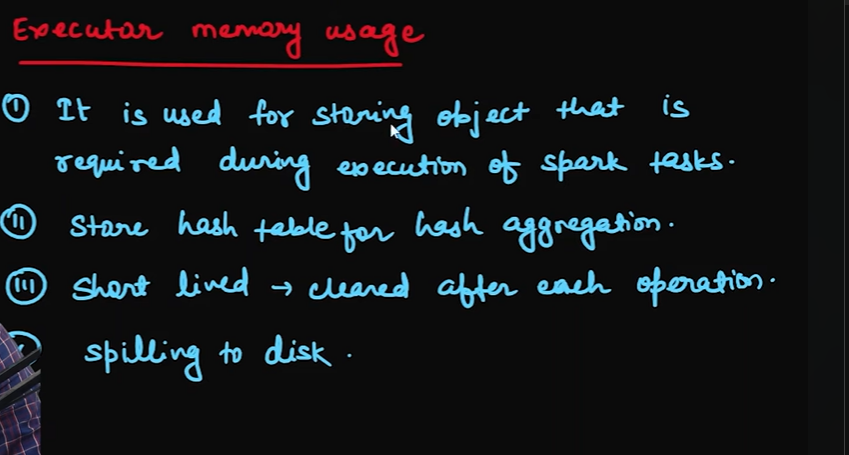 Executor memory usage
(I) It is used for storing object that is
required during execution of spark tasks.
(II) Store hash table for hash aggregation.
(III) Short lived → cleared after each operation.
spilling to disk.